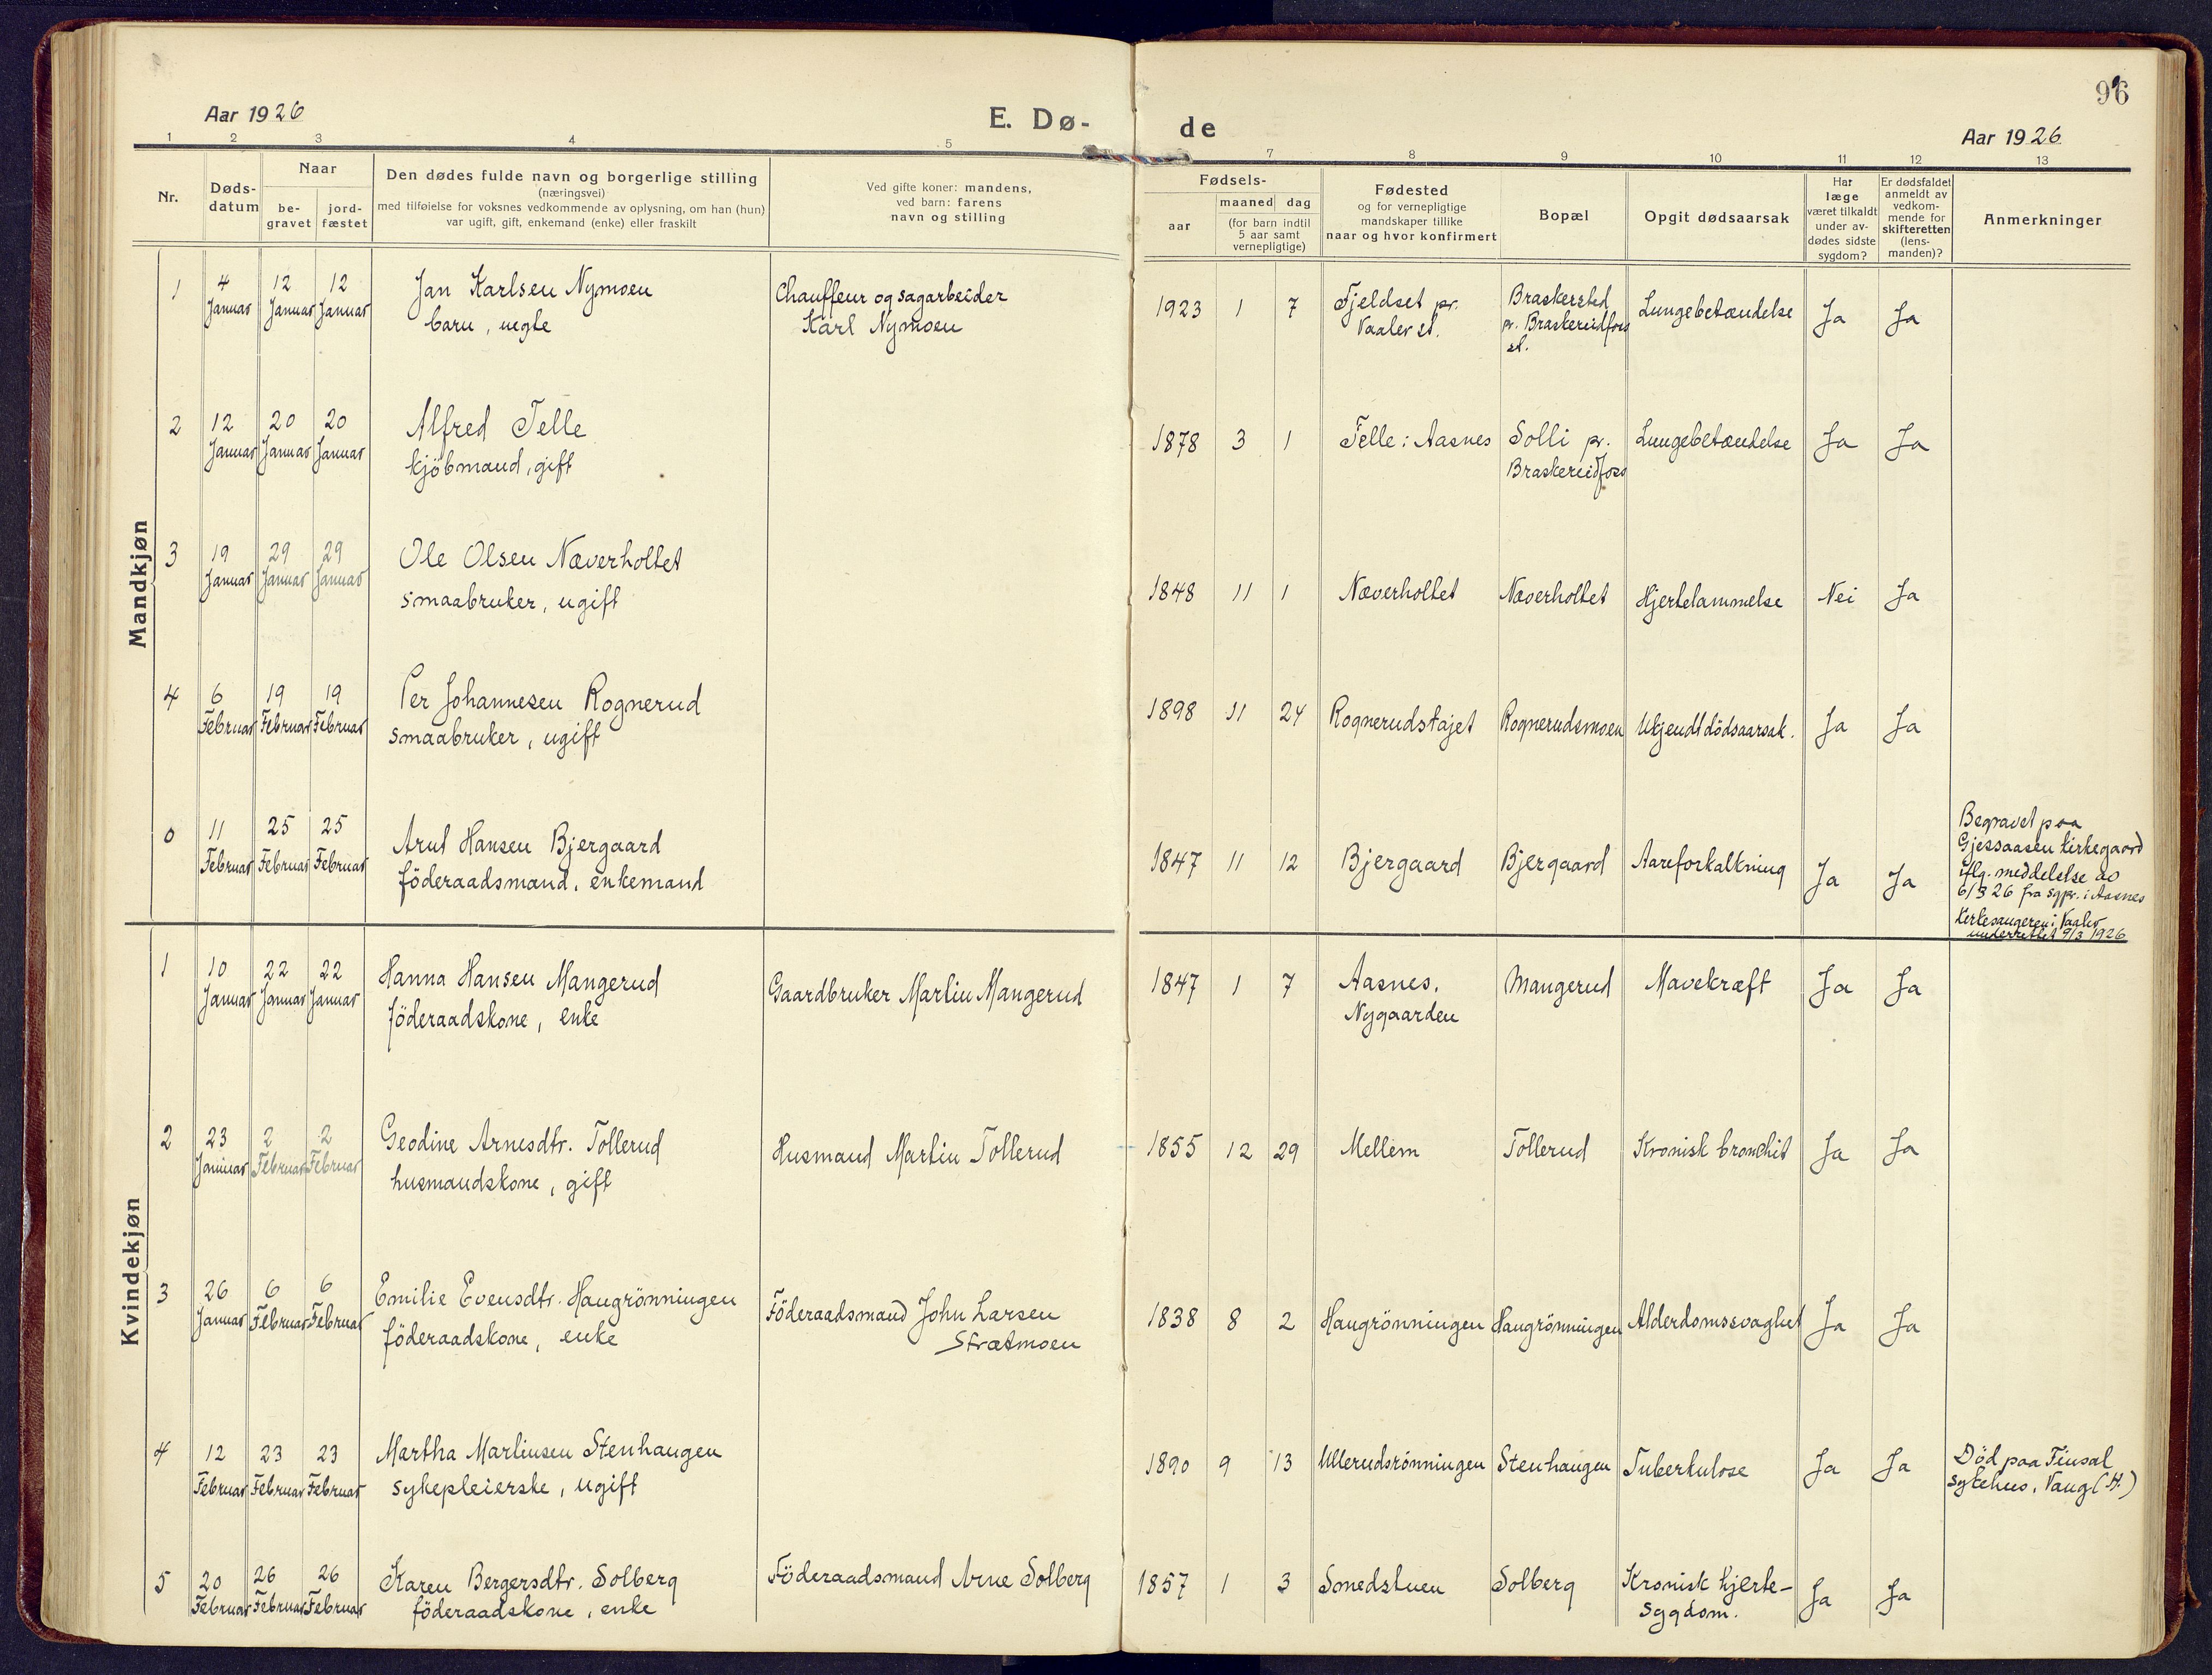 96
Aar 1926
E. Dø-
de
Aar 1926
1 2 3 4 5 7 8 9 10 11 12 13
Nr.
Døds-
datum
Naar
be-
gravet
jord-
fæstet
Den dødes fulde navn og borgerlige stilling
(næringsvei)
med tilføielse for voksnes vedkommende av oplysning, om han (hun)
var ugift, gift, enkemand (enke) eller fraskilt
Ved gifte koner: mandens,
ved barn: farens
navn og stilling
Fødsels-
aar
maaned dag
(for barn indtil
5 aar samt
vernepligtige)
Fødested
og for vernepligtige
mandskaper tillike
naar og hvor konfirmert
Bopæl
Opgit dødsaarsak
Har
læge
været tilkaldt
under av-
dødes sidste
sygdom?
Er dødsfaldet
anmeldt av
vedkom-
mende for
skifteretten
(lens-
manden)?
Anmerkninger
Mandkjøn
1
4
Januar
12
Januar
12
Januar
Jan Karlsen Nymoen
barn, uegte
Chauffeur og sagarbeider
Karl Nymoen
1923 1 7
Fjeldset pr.
Vaaler st.
Braskersted
pr. Braskereidfos
st.
Lungebetændelse
Ja
Ja
2
12
Januar
20
Januar
20
Januar
Alfred Telle
kjöbmand, gift
1878 3 1
Telle: Aasnes
Solli pr.
Braskereidfoss
Lungebetændelse
Ja
Ja
3
19
Januar
29
Januar
29
Januar
Ole Olsen Næverholtet
smaabruker, ugift
1848 11 1
Næverholtet
Næverholtet
Hjertelammelse
Nei
Ja
4
6
Februar
19
Februar
19
Februar
Per Johannesen Rognerud
smaabruker, ugift
1898 11 24
Rognerudstajet
Rognerudsmoen
Ukjendt dödsaarsak.
Ja
Ja
0
11
Februar
25
Februar
25
Februar
Arnt Hansen Bjergaard
föderaadsmand, enkemand
1847 11 12
Bjergaard
Bjergaard
Aareforkalkning
Ja
Ja
Begravet paa
Gjessaasen kirkegaard
iflg. meddelelse av
6/3 26 fra sgpr. i Aasnes
Kirkesangeren i Vaaler
underrettet 9/3 1926
Kvindekjøn
1
10
Januar
22
Januar
22
Januar
Hanna Hansen Mangerud
föderaadskone, enke
Gaardbruker Martin Mangerud
1847 1 7
Aasnes.
Nygaarden
Mangerud
Mavekræft
Ja
Ja
2
23
Januar
2
Februar
2
Februar
Geodine Arnesdtr. Tollerud
husmandskone, gift
Husmand Martin Tollerud
1855 12 29
Mellem
Tollerud
Kronisk bronchit
Ja
Ja
3
26
Januar
6
Februar
6
Februar
Emilie Evensdtr. Haugrönningen
föderaadskone, enke
Föderaadsmand John Larsen
Strætmoen
1838 8 2
Haugrönningen
Haugrönningen
Alderdomssvaghet
Ja
Ja
4
12
Februar
23
Februar
23
Februar
Martha Martinsen Stenhaugen
sykepleierske, ugift
1890 9 13
Ullerudsrönningen
Stenhaugen
Tuberkulose
Ja
Ja
Död paa Finsal
sykehus, Vang (H.)
5
20
Februar
26
Februar
26
Februar
Karen Bergersdtr. Solberg
föderaadskone, enke
Föderaadsmand Arne Solberg
1857 1 3
Smedstuen
Solberg
Kronisk hjerte-
sygdom.
Ja
Ja